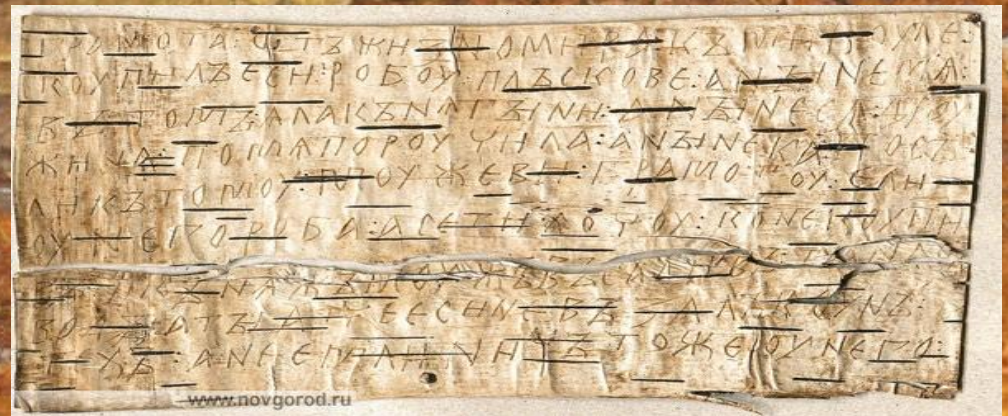 грамота : отъ жизномира : къ микоуле :
коупилъ еси : робоу : плъскове : а нъіне мѧ :
въ томъ : ѧла кънѧгъіни : а нъіне сѧ дроу
жина : по мѧ пороучила : а нъіне ка : посъ
ли къ томоу : моужеви : грамотоу : е ли
оу него роба : а се ти хочоу : коне коупи
въ : и кънѧжъ моужъ въсадивъ : та на съ
водъі : а тъі атче еси не възалъ коунъ :
техъ : а не емли : ничъто же оу него :
www.novgorod.ru